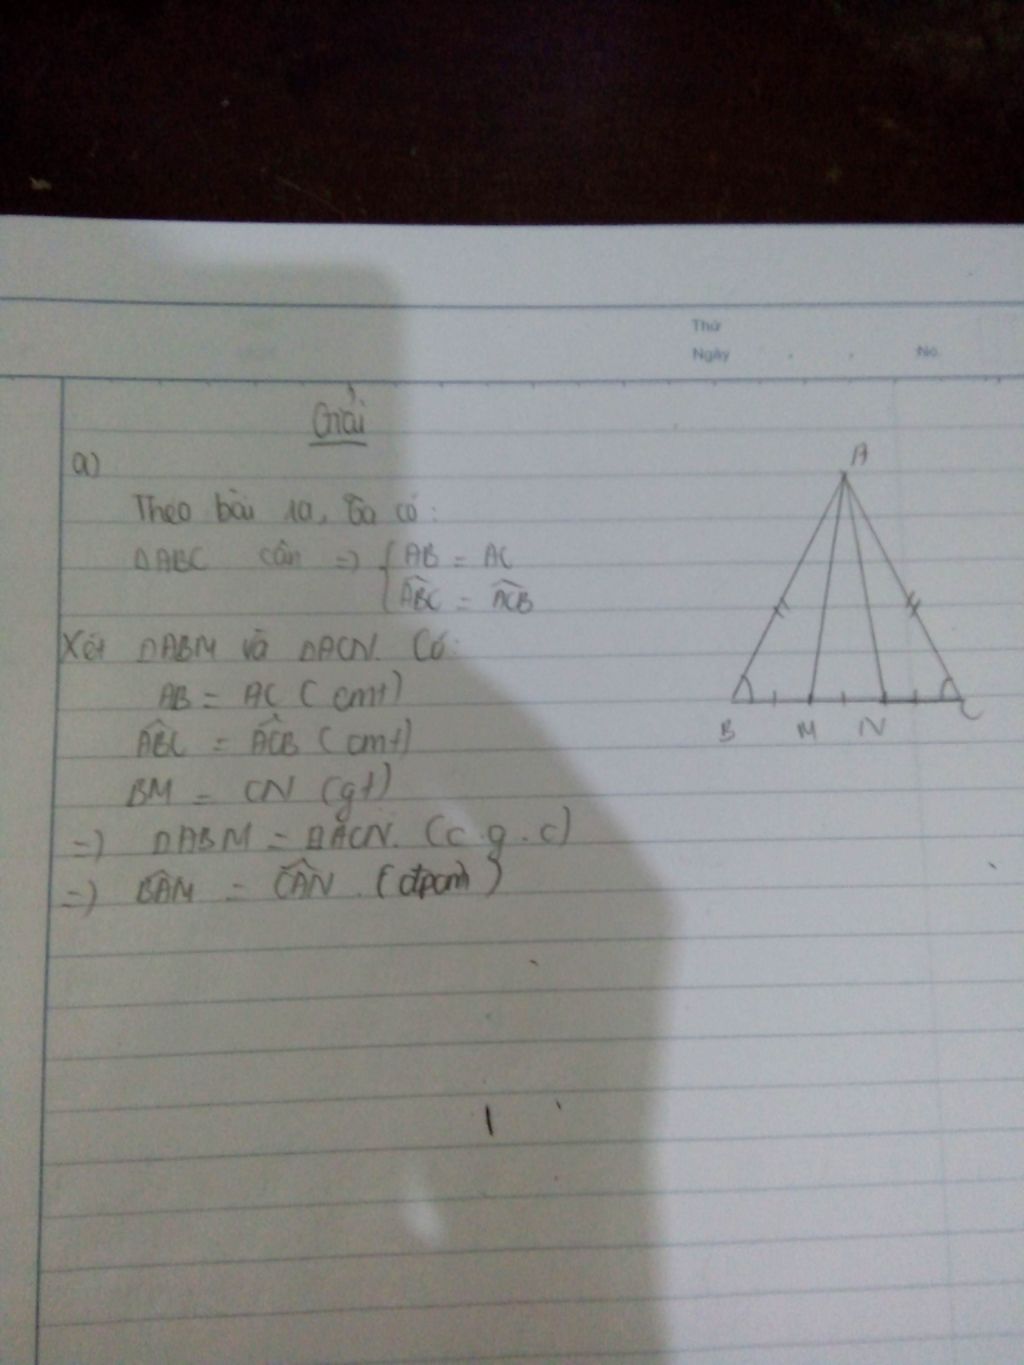 Thứ
Ngày . . No.
Giải
a)
Theo bài ra, ta có:
ΔABC cân => { AB = AC
ABC^ = ACB^
Xét ΔABM và ΔACN. Có:
AB = AC (cmt)
ABC^ = ACB^ (cmt)
BM = CN (gt)
=) ΔABM = ΔACN. (c.g.c)
=) BAM^ = CAN^. (đpcm)
A
B M N C